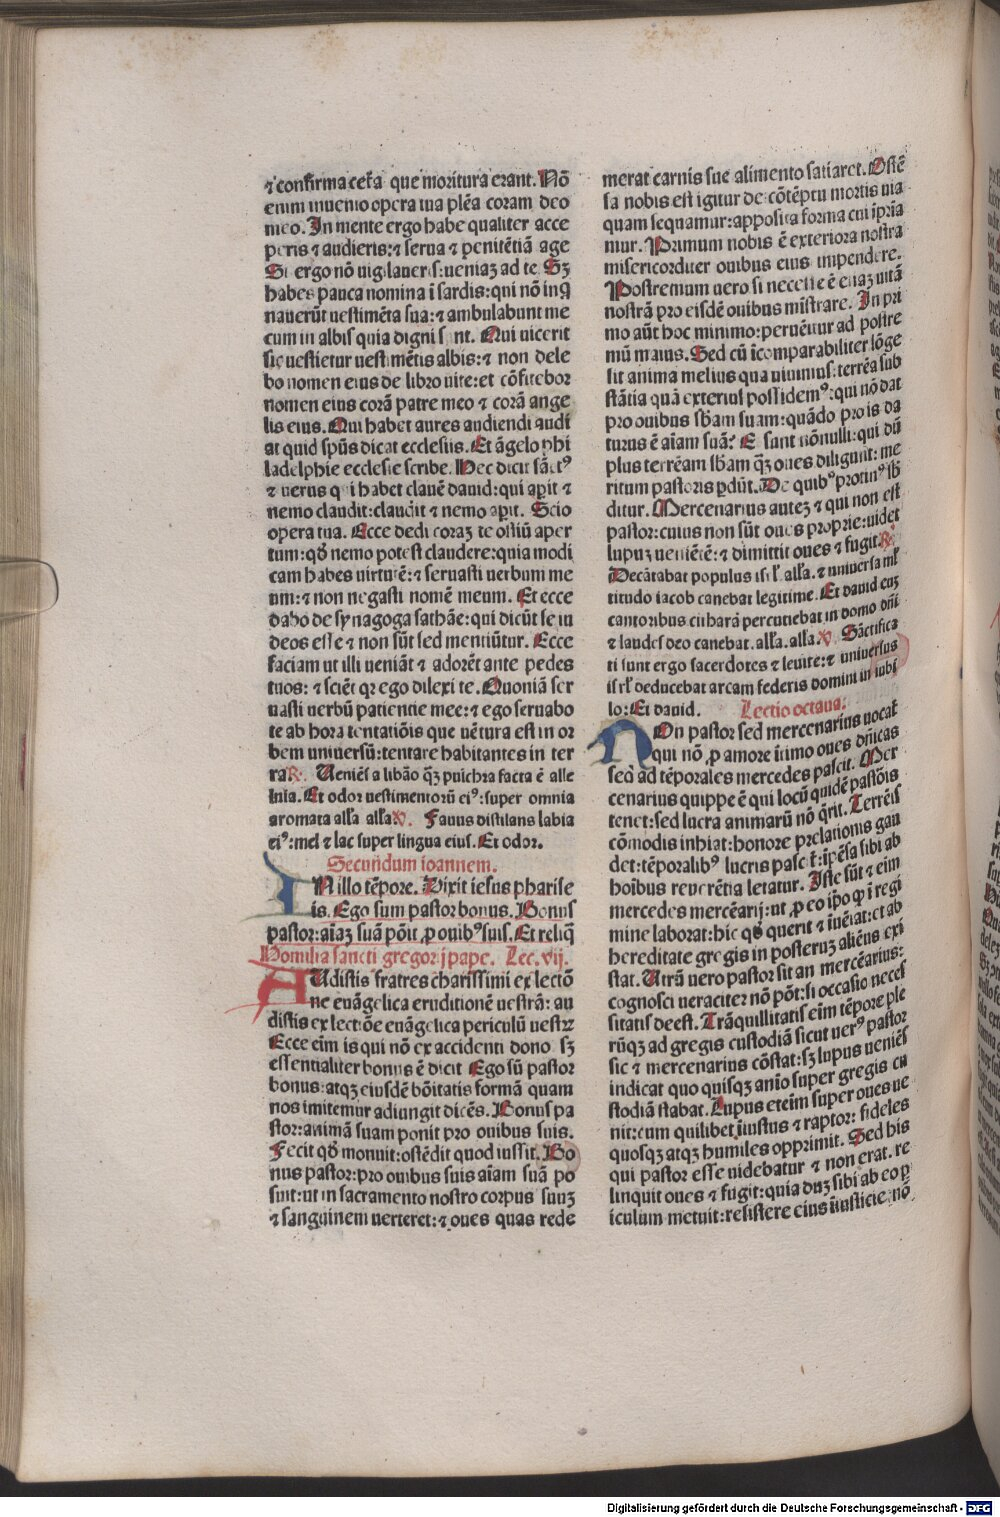 ⁊ confirma cet̃a que moritura erant. Nõ
enim inuenio opera tua plẽa coram deo
meo. In mente ergo habe qualiter acce
peris ⁊ audieris: ⁊ serua ⁊ penitẽtiã age
Si ergo nõ uigilaueris: ueniaʒ ad te. Sʒ
habes pauca nomina ĩ sardis: qui nõ inq̃
nauerũt uestimẽta sua: ⁊ ambulabunt me
cum in albis quia digni sunt. Qui uicerit
sic uestietur uestimẽtis albis: ⁊ non dele
bo nomen eius de libro uite: et cõfitebor
nomen eius corã patre meo ⁊ corã ange
lis eius. Qui habet aures audiendi audi
at quid spũs dicat ecclesiis. Et ãgelo phi
ladelphie ecclesie scribe. Hec dicit sãctꝰ
⁊ uerus qui habet clauẽ dauid: qui apit ⁊
nemo claudit: claudit ⁊ nemo apit. Scio
opera tua. Ecce dedi coraʒ te ostiũ aper
tum: qđ nemo potest claudere: quia modi
cam habes uirtutẽ: ⁊ seruasti uerbum me
um: ⁊ non negasti nomẽ meum. Et ecce
dabo de synagoga sathãe: qui dicũt se iu
deos esse ⁊ non sũt sed mentiũtur. Ecce
faciam ut illi ueniãt ⁊ adorẽt ante pedes
tuos: ⁊ sciẽt qꝛ ego dilexi te. Quoniã ser
uasti uerbũ patientie mee: ⁊ ego seruabo
te ab hora tentatiõis que uẽtura est in or
bem uniuersũ: tentare habitantes in ter
ra ℟. Ueniẽs a libão qʒ pulchra facta ẽ alle
luia. Et odor uestimentorũ eiꝰ: super omnia
aromata alľa alľa ℣. Fauus distilans labia
eiꝰ: mel ⁊ lac super lingua eius. Et odor.
Secundum ioannem.
IN illo tẽpore. Dixit iesus pharise
is. Ego sum pastor bonus. Bonus
pastor: aĩaʒ suã põit ꝓ ouibꝰ suis. Et reliq̃
Homilia sancti gregorij pape. Lec. vij.
AUdistis fratres charissimi ex lectõ
ne euãgelica eruditionẽ uestrã: au
distis ex lectiõe euãgelica periculũ uestꝝ
Ecce eĩm is qui nõ ex accidenti dono sʒ
essentialiter bonus ẽ dicit Ego sũ pastor
bonus: atqʒ eiusdẽ bõitatis formã quam
nos imitemur adiungit dicẽs. Bonus pa
stor: animã suam ponit pro ouibus suis.
Fecit qđ monuit: ostẽdit quod iussit. Bo
nus pastor: pro ouibus suis aĩam suã po
suit: ut in sacramento nostro corpus suuʒ
⁊ sanguinem uerteret: ⁊ oues quas rede
merat carnis sue alimento satiaret. Ostẽ
sa nobis est igitur de cõtẽptu mortis uia
quam sequamur: apposita forma cui ĩpriã
mur. Primum nobis ẽ exteriora nostra
misericorditer ouibus eius impendere.
Postremum uero si necesse ẽ etiaʒ uitã
nostrã pro eisdẽ ouibus mĩstrare. In pri
mo aũt hoc minimo: peruẽitur ad postre
mũ maius. Sed cũ ĩcomparabiliter lõge
sit anima melius qua uiuimus: terrẽa sub
stãtia quã exterius possidemꝰ: qui nõ dat
pro ouibus sb̃am suam: quãdo pro is da
turus ẽ aĩam suã? Et sunt nõnulli: qui dũ
plus terrẽam sb̃am qʒ oues diligunt: me
ritum pastoris pdũt. De quibꝰ protinꝰ sb̃
ditur. Mercenarius auteʒ ⁊ qui non est
pastor: cuius non sũt oues proprie: uidet
lupuʒ ueniẽtẽ: ⁊ dimittit oues ⁊ fugit. ℟
Decãtabat populus isrľ. alľa. ⁊ uniuersa mľ
titudo iacob canebat legitime. Et dauid cuʒ
cantoribus citharã percutiebat in domo dñi
⁊ laudes deo canebat. alľa. alľa. ℣. Sãctifica
ti sunt ergo sacerdotes ⁊ leuite: ⁊ uniuersus
isrľ deducebat arcam federis domini in iubi
lo: Et dauid. Lectio octaua.
NOn pastor sed mercenarius uocať
qui nõ ꝓ amore ĩtimo oues dñicas
sed ad tẽporales mercedes pascit. Mer
cenarius quippe ẽ qui locũ quidẽ pastõis
tenet: sed lucra animarũ nõ q̃rit. Terrẽis
cõmodis inhiat: honore prelationis gau
det: tẽporalibꝰ lucris pascit: ĩpẽsa sibi ab
hoĩbus reuerẽtia letatur. Iste sũt ⁊ eĩm
mercedes mercẽarij: ut ꝓ eo ip̃o qđ ĩ regi
mine laborat: hic qđ querit ⁊ iuẽiat: et ab
hereditate gregis in posteruʒ aliẽus exi
stat. Utrũ uero pastor sit an mercẽarius:
cognosci ueraciter nõ põt: si occasio neces
sitatis deest. Trãquillitatis eĩm tẽpore ple
rũqʒ ad gregis custodiã sicut uerꝰ pastor
sic ⁊ mercenarius cõstat: sʒ lupus ueniẽs
indicat quo quisqʒ anĩo super gregis cu
stodiã stabat. Lupus eteĩm super oues ue
nit: cum quilibet ĩiustus ⁊ raptor: fideles
quosqʒ atqʒ humiles opprimit. Sed his
qui pastor esse uidebatur ⁊ non erat. re
linquit oues ⁊ fugit: quia duʒ sibi ab eo p
iculum metuit: resistere eius iiusticie nõ
Digitalisierung gefördert durch die Deutsche Forschungsgemeinschaft - DFG